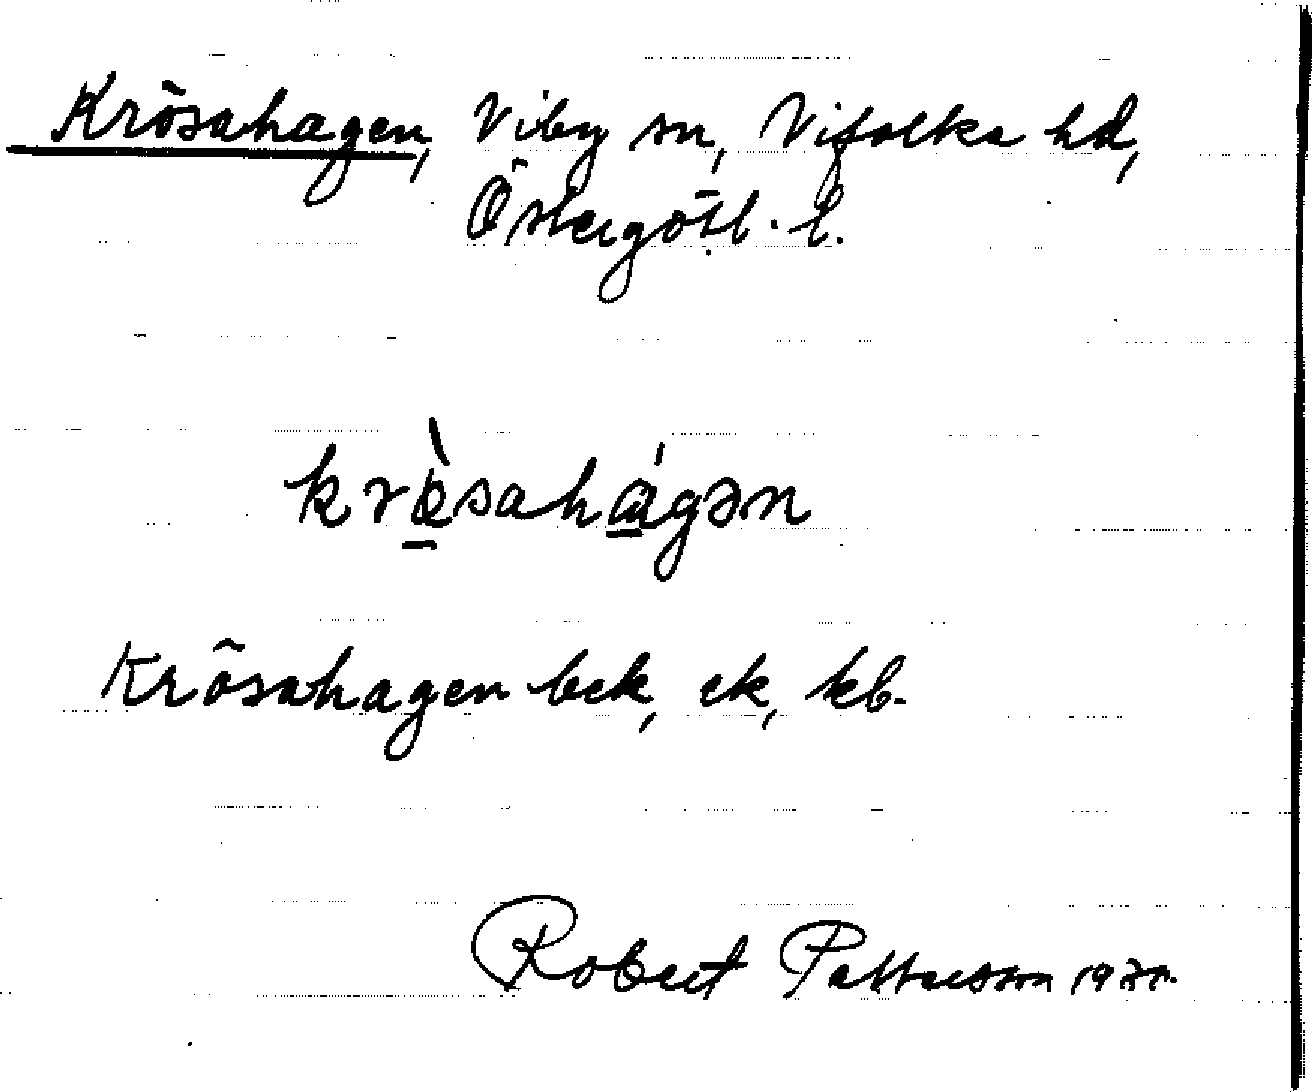 Krösahagen, Viby sn, Vifolka hd,
Östergötl. l.
krö̀sahágən
Krösahagen bek, ek, kb.
Robert